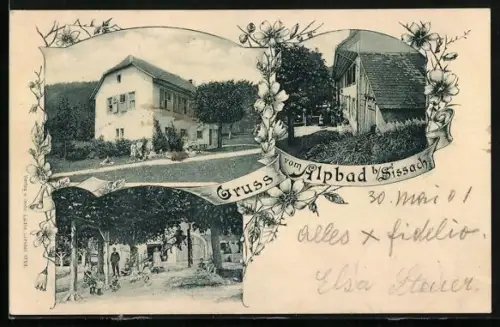 Gruss
vom Alpbad b/ Sissach
30. Mai 01
alles x fidelio.
Elsa